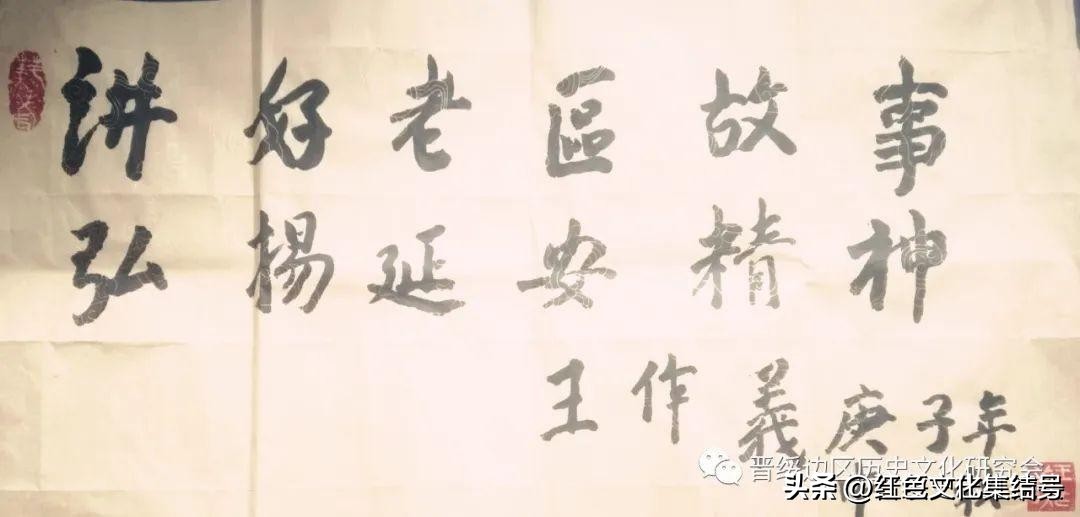 讲好老區故事
弘揚延安精神
王作義 庚子年
晋绥边区历史文化研究会
头条 @红色文化集结号